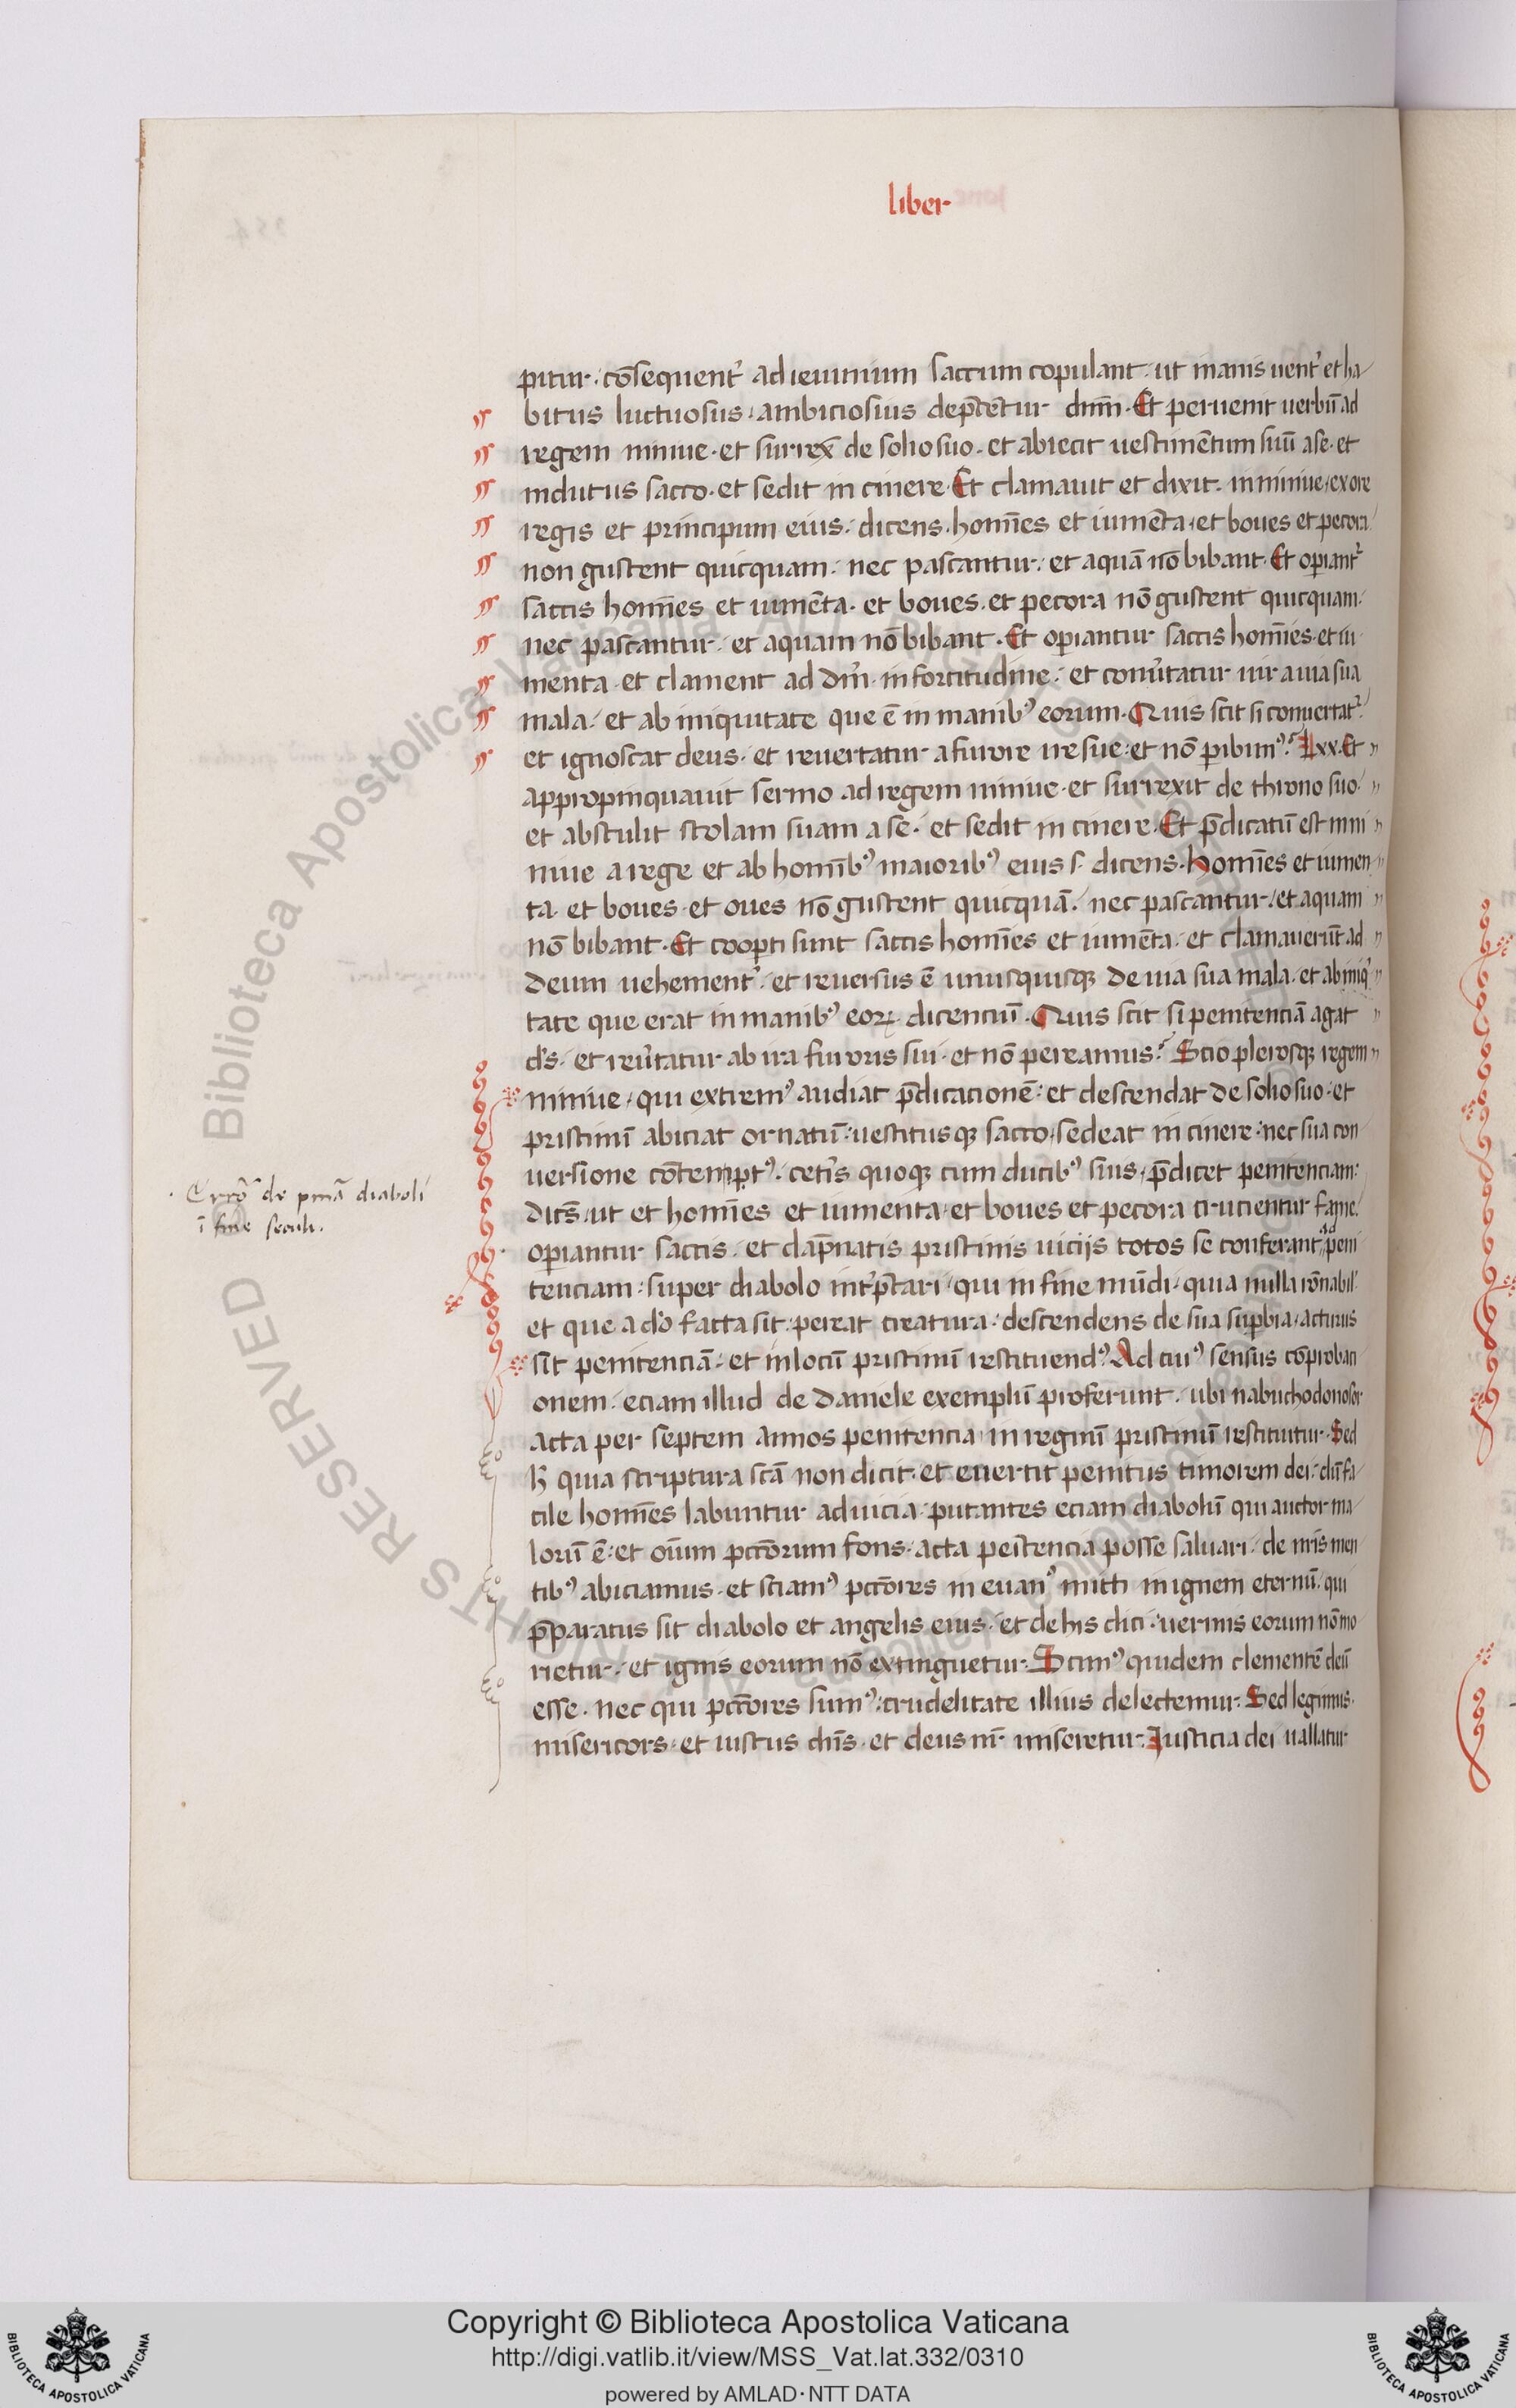 liber
pitur. cōsequent᷑ ad ieiunium saccum copulant. ut inanis uent᷑ et ha
bitus luctuosus. ambiciosius dep̄cētur dn̄m. Et peruenit uerbū ad
regem niniue. et surrex̄ de solio suo. et abiecit uestimētum suū a se. et
indutus sacco. et sedit in cinere. Et clamauit et dixit. in niniue. ex ore
regis et principum eius. dicens. homīes et iumēta. et boues et pecora
non gustent quicquam. nec pascantur. et aquā nō bibant. Et opiant᷑
saccis homīes et iumēta. et boues. et pecora nō gustent quicquam.
nec pascantur. et aquam nō bibant. Et opiantur saccis homīes. et iu
menta. et clament ad dn̄m. in fortitudine. et conu͛tatur uir a uia sua
mala. et ab iniquitate que ē in manibꝰ eorum. Quis scit si conuertat᷑
et ignoscat deus. et reuertatur a furore ire sue. et nō pibimꝰ? Lxx. Et
appropinquauit sermo ad regem niniue. et surrexit de throno suo.
et abstulit stolam suam a se. et sedit in cinere. Et p̄dicatū est in ni
niue a rege et ab homībꝰ maioribꝰ eius s. dicens. Homīes et iumen
ta. et boues. et oues nō gustent quicquā. nec pascantur. et aquam
nō bibant. Et coopti sunt saccis homīes et iumēta. et clamauerūt ad
deum uehement᷑. et reuersus ē unusquisqꝫ de uia sua mala. et ab iniq
tate que erat in manibꝰ eoꝝ dicenciū. Quis scit si penitenciā agat
ds̄. et reu͛tatur ab ira furoris sui. et nō pereamus? Scio plerosqꝫ regem
niniue. qui extremꝰ audiat p̄dicacionē. et descendat de solio suo. et
pristinū abiciat ornatū. uestitusqꝫ sacco. sedeat in cinere. nec sua con
uersione cōtemptꝰ. cet͛is quoqꝫ cum ducibꝰ suis. p̄dicet penitenciam.
dicēs. ut et homīes et iumenta. et boues et pecora crucientur fame.
opiantur saccis. et dāpnatis pristinis uicijs totos se conferant ad peni
tenciam. super diabolo int͛p̄tari. qui in fine mūdi. quia nulla rōnabil
et que a do facta sit. pereat creatura. descendens de sua supbia. acturus
sit penitenciā. et in locū pristinū restituendꝰ. Ad cuiꝰ sensus cōprobaci
onem. eciam illud de daniele exemplū proferunt. ubi nabuchodonosor
acta per septem annos penitencia in regnū pristinū restituitur. Sed
h̄ quia scriptura sc̄a non dicit. et euertit penitus timorem dei. dū fa
cile homīes labuntur ad uicia. putantes eciam diabolū qui auctor ma
lorū ē. et oīum pcc̄orum fons. acta peītencia posse saluari. de nr̄is men
tibꝰ abiciamus. et sciamꝰ pcc̄ores in euanꝰ mitti in ignem eternū. qui
p̄paratus sit diabolo et angelis eius. et de his dici. uermis eorum nō mo
rietur. et ignis eorum nō extinguetur. Scimꝰ quidem clementē deū
esse. nec qui pcc̄ores sumꝰ. crudelitate illius delectemur. Sed legimus.
misericors. et iustus dn̄s. et deus nr̄ miseretur. Iusticia dei uallatur
Error de pn̄ia diaboli
ī fine seculi.
Copyright © Biblioteca Apostolica Vaticana
http://digi.vatlib.it/view/MSS_Vat.lat.332/0310
powered by AMLAD·NTT DATA